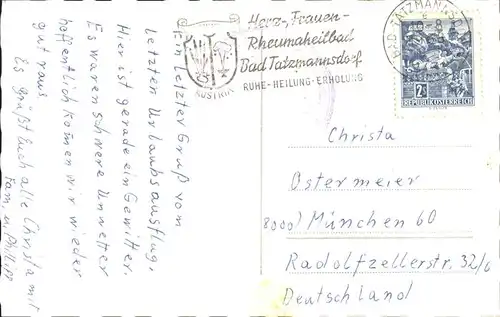 Herz-, Frauen-
Rheumaheilbad
Bad Tatzmannsdorf
RUHE - HEILUNG - ERHOLUNG
AUSTRIA
BAD TATZMANNSD
2S
REPUBLIK ÖSTERREICH
Ein letzter Gruß vom
letzten Urlaubsausflug.
Hier ist gerade ein Gewitter.
Es waren schwere Unwetter
hoffentlich kommen wir wieder
gut raus
Es grüßt Euch alle Christa mit
Fam. u. Philipp
Christa
Ostermeier
8000 München 60
Radolfzellerstr. 32/0
Deutschland